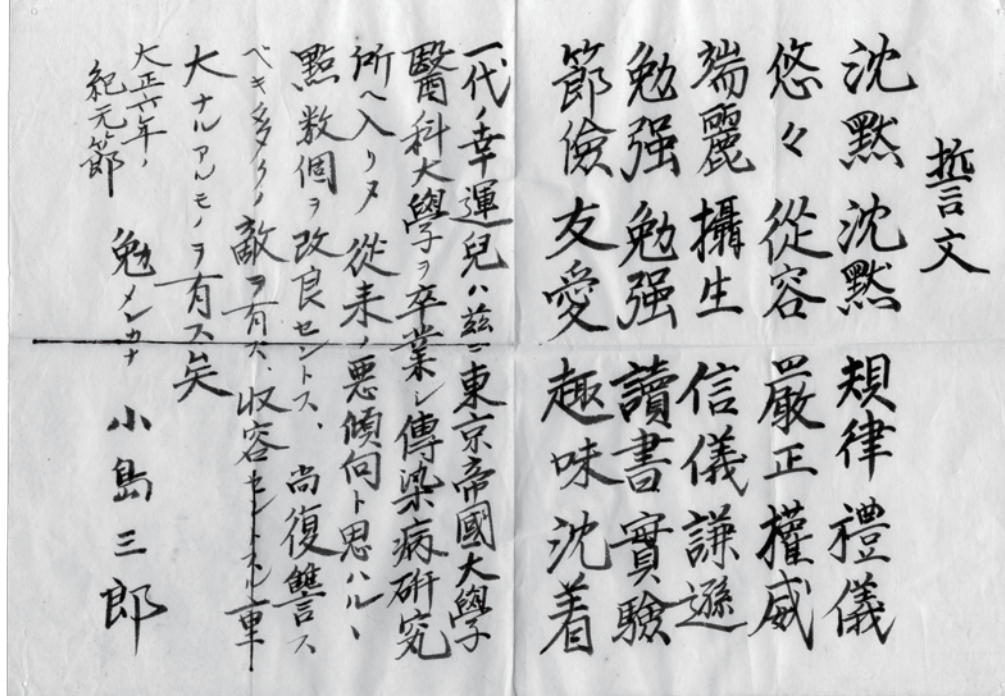 誓言文
沈黙沈黙 規律禮儀
悠々從容 嚴正權威
端麗攝生 信儀謙遜
勉强勉强 讀書實驗
節儉友愛 趣味沈着
一代ノ幸運兒ハ茲ニ東京帝國大學
醫科大學ヲ卒業シ傳染病研究
所ヘ入リヌ 從来ノ悪傾向ト思ハルヽ
點数個ヲ改良セントス、尚復讐ス
ベキ多クノ敵ヲ有ス、収容セントスル軍
大ナルアルモノヲ有ス矣
大正六年ノ
紀元節 勉メンカナ 小島三郎